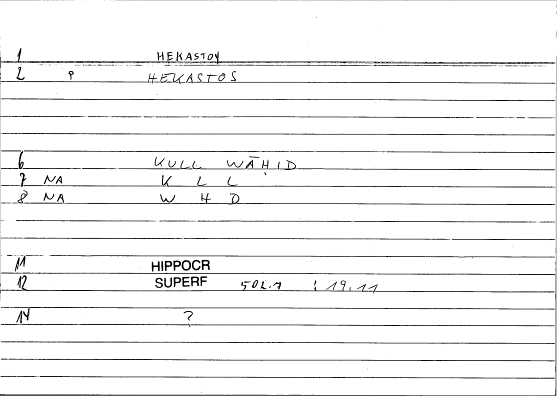 1 HEKASTOY
2 P HEKASTOS
6 KULL WĀḤID
7 NA K L L
8 NA W H D
11 HIPPOCR
12 SUPERF 502.1 : 19.11
14 ?